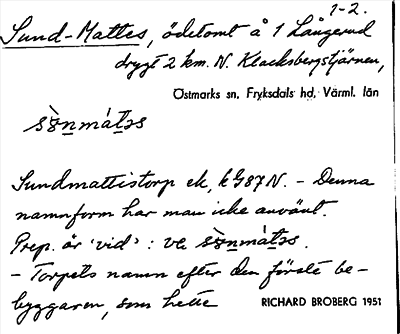 1-2.
Sund-Mattes, ödetomt å 1 Långerud
drygt 2 km. N. Klacksbergstjärnen,
Östmarks sn, Fryksdals hd, Värml. län
Sundmattistorp ek, k G87 N. – Denna
namnform har man icke använt.
Prep. är 'vid' : ve
– Torpets namn efter den förste be-
byggaren, som hette
RICHARD BROBERG 1951